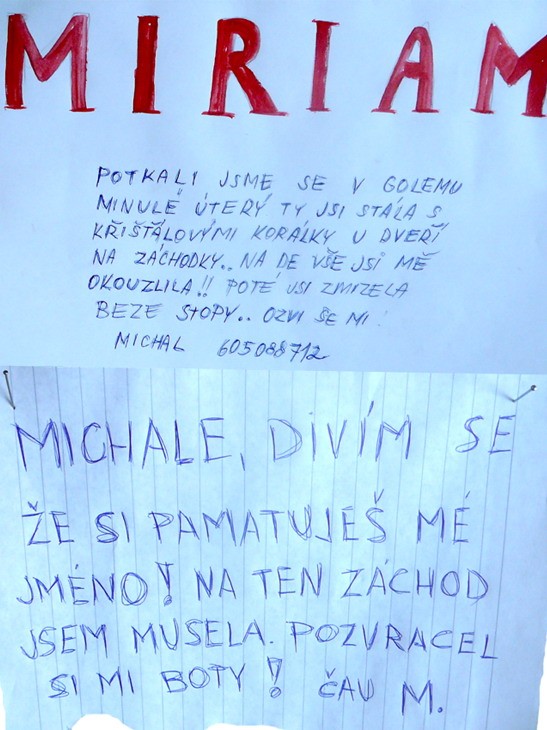 MIRIAM
POTKALI JSME SE V GOLEMU
MINULÉ ÚTERÝ TY JSI STÁLA S
KŘIŠŤÁLOVÝMI KORÁLKY U DVEŘÍ
NA ZÁCHODKY.. NA DE VŠE JSI MĚ
OKOUZLILA!! POTÉ JSI ZMIZELA
BEZE STOPY.. OZVI SE MI!
MICHAL 605088712
MICHALE, DIVÍM SE
ŽE SI PAMATUJEŠ MÉ
JMÉNO! NA TEN ZÁCHOD
JSEM MUSELA. POZVRACEL
SI MI BOTY! ČAU M.